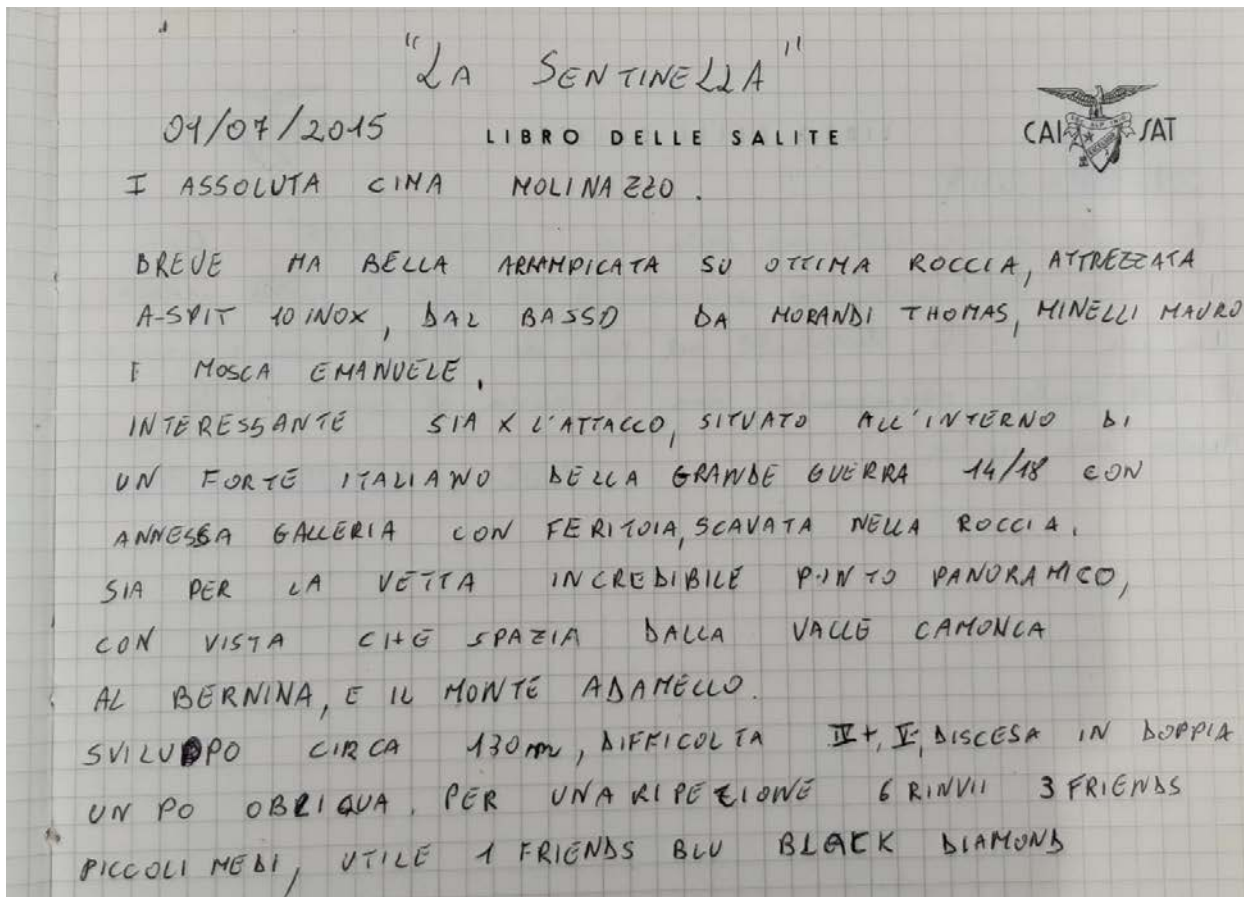 "LA SENTINELLA"
01/07/2015 LIBRO DELLE SALITE CAI SAT
I ASSOLUTA CIMA MOLINAZZO.
BREVE MA BELLA ARRAMPICATA SU OTTIMA ROCCIA, ATTREZZATA
A-SPIT 10 INOX, DAL BASSO DA MORANDI THOMAS, MINELLI MAURO
E MOSCA EMANUELE.
INTERESSANTE SIA X L'ATTACCO, SITUATO ALL'INTERNO DI
UN FORTE ITALIANO DELLA GRANDE GUERRA 14/18 CON
ANNESSA GALLERIA CON FERITOIA, SCAVATA NELLA ROCCIA.
SIA PER LA VETTA INCREDIBILE PUNTO PANORAMICO,
CON VISTA CHE SPAZIA DALLA VALLE CAMONCA
AL BERNINA, E IL MONTE ADAMELLO.
SVILUPPO CIRCA 130m, DIFFICOLTA IV+, V-, DISCESA IN DOPPIA
UN PO OBLIQUA. PER UNA RIPETIZIONE 6 RINVII 3 FRIENDS
PICCOLI MEDI, UTILE 1 FRIENDS BLU BLACK DIAMOND